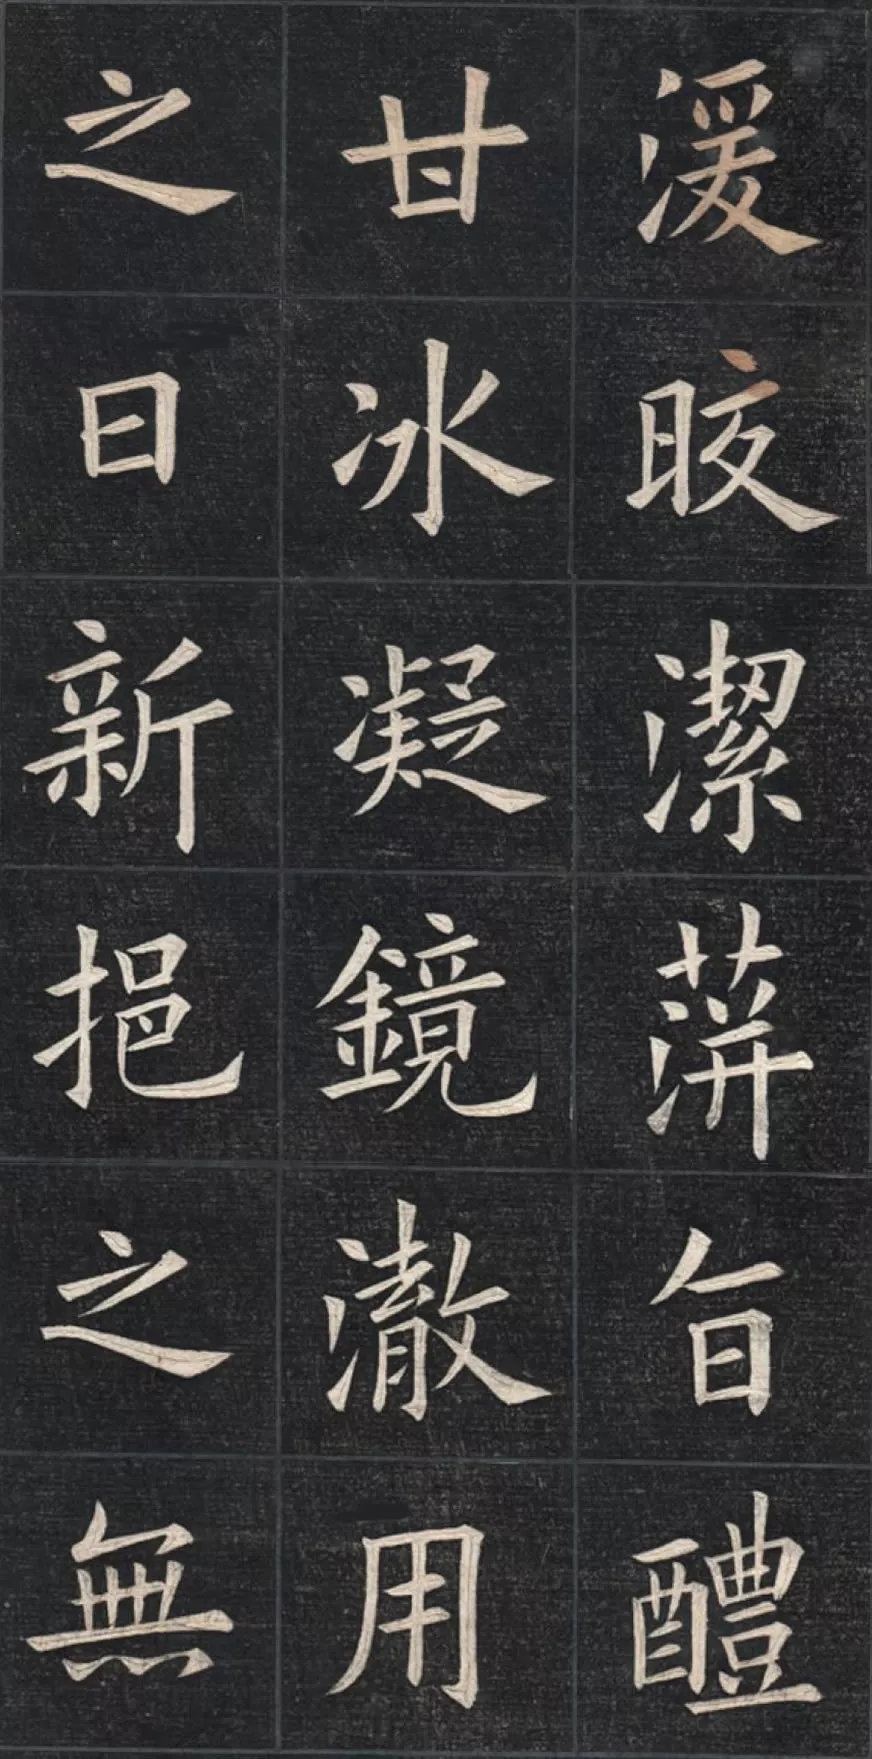 湲晈潔萍旨醴
甘冰凝鏡澈用
之日新挹之無